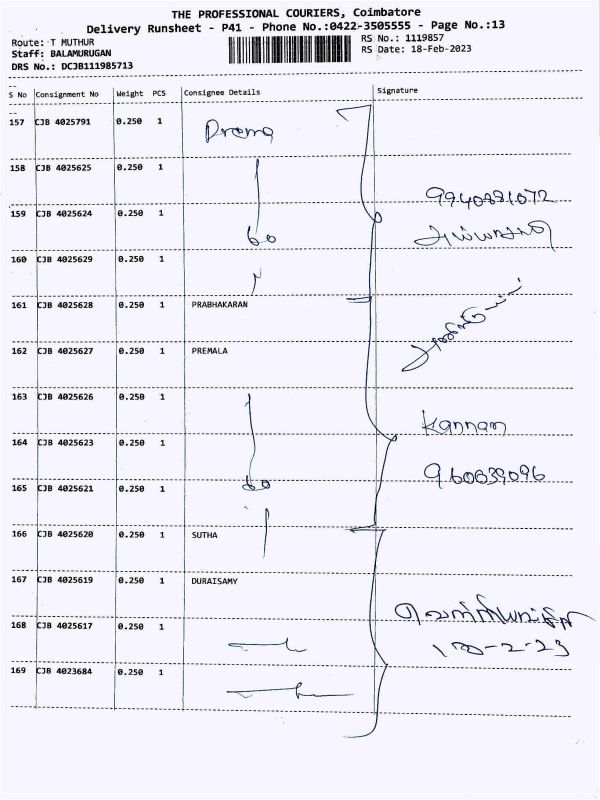 THE PROFESSIONAL COURIERS, Coimbatore
Delivery Runsheet - P41 - Phone No.:0422-3505555 - Page No.:13
Route: T MUTHUR
RS No.: 1119857
Staff: BALAMURUGAN
RS Date: 18-Feb-2023
DRS No.: DCJB111985713
S No Consignment No Weight PCS Consignee Details Signature
157 CJB 4025791 0.250 1 Prema
158 CJB 4025625 0.250 1
9940881072
159 CJB 4025624 0.250 1
60
160 CJB 4025629 0.250 1
161 CJB 4025628 0.250 1 PRABHAKARAN
162 CJB 4025627 0.250 1 PREMALA
163 CJB 4025626 0.250 1
Kannan
164 CJB 4025623 0.250 1
960639096
165 CJB 4025621 0.250 1
60
166 CJB 4025620 0.250 1 SUTHA
167 CJB 4025619 0.250 1 DURAISAMY
168 CJB 4025617 0.250 1
169 CJB 4023684 0.250 1